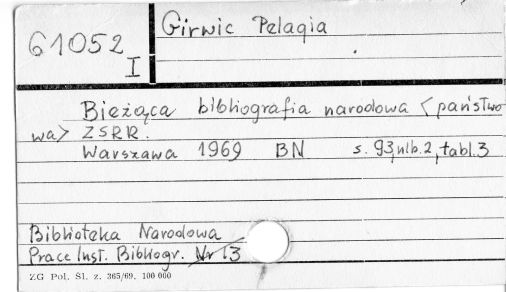 61052
I
Girwic Pelagia
Bieżąca bibliografia narodowa <państwo-
wa> ZSRR.
Warszawa 1969 BN s. 93, nlb. 2, tabl. 3
Biblioteka Narodowa
Prace Inst. Bibliogr. Nr 13
ZG Pol. Śl. z. 365/69. 100 000